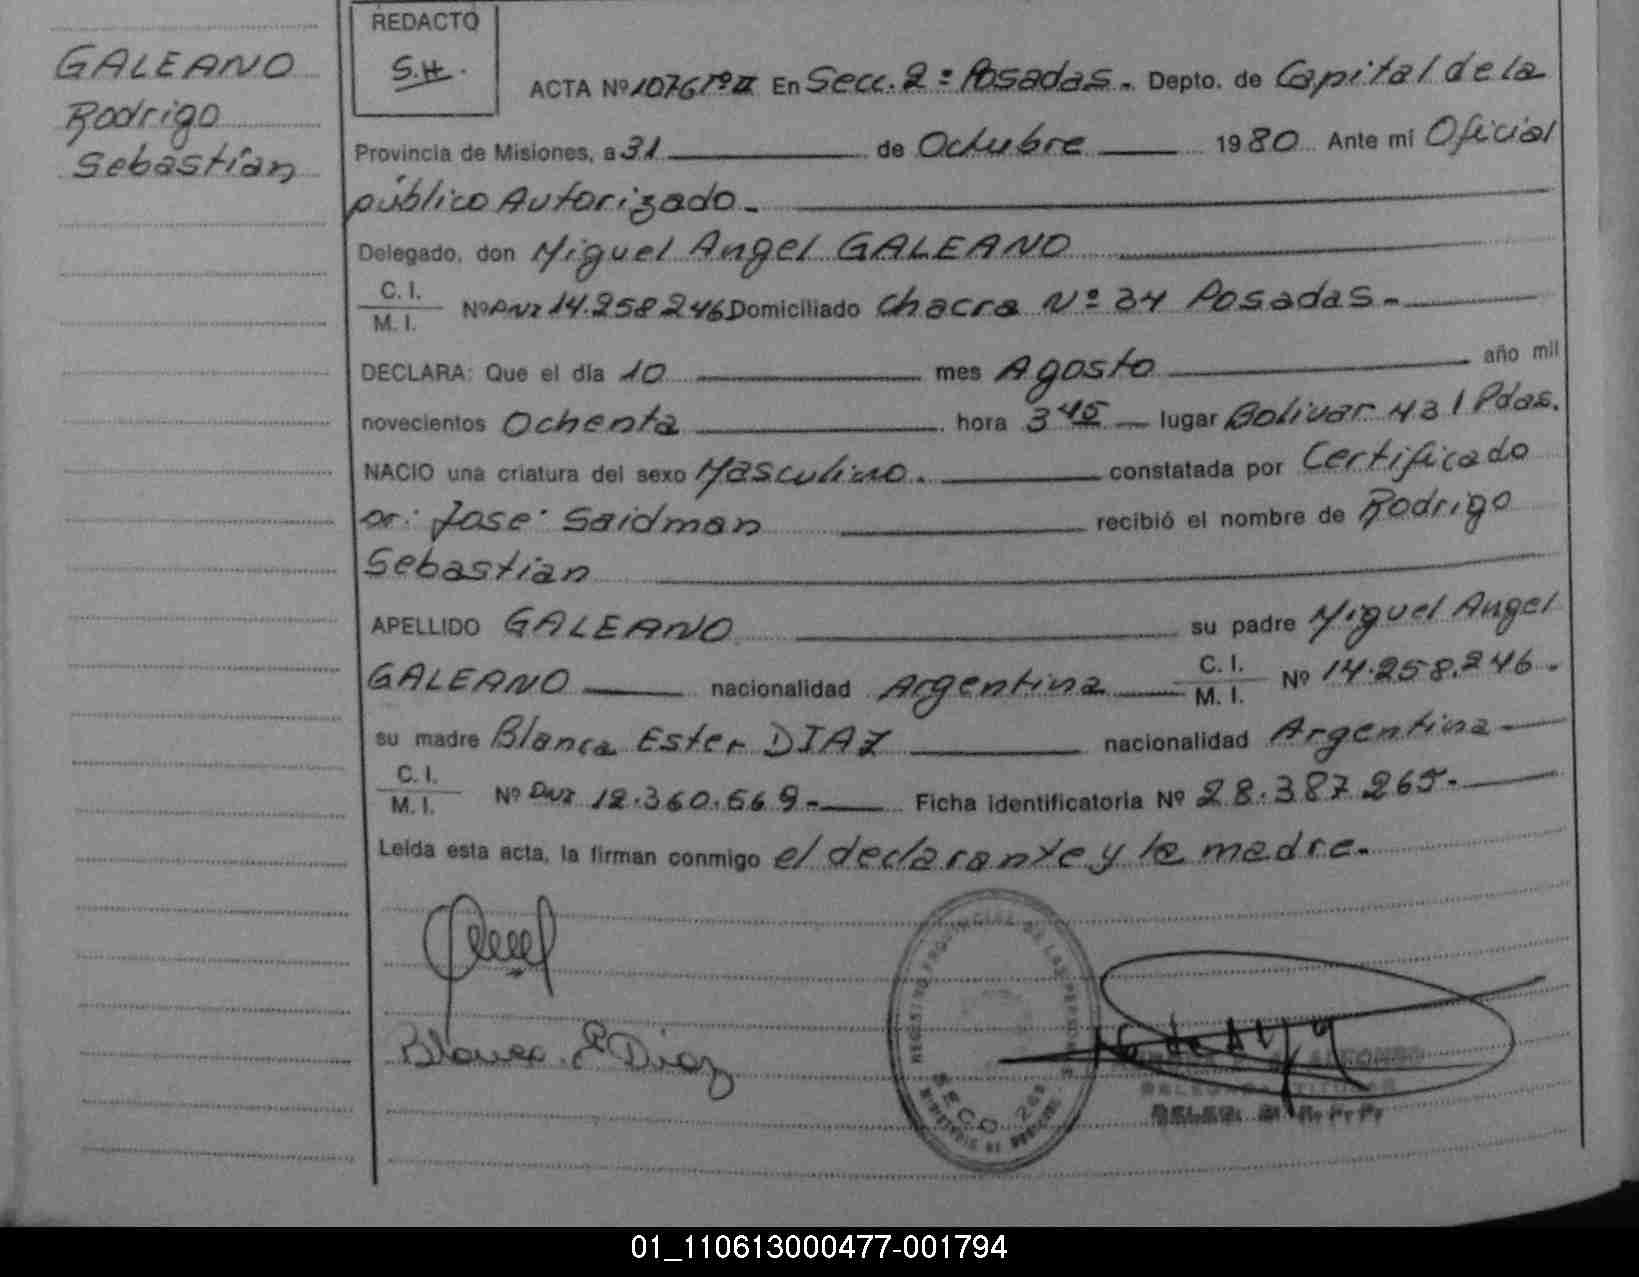 GALEANO
Rodrigo
Sebastián
REDACTO
S.H.
ACTA Nº 1076 Tº II En Secc. 2ª Posadas.- Depto. de Capital de la
Provincia de Misiones, a 31 de Octubre 1980 Ante mi Oficial
público Autorizado.-
Delegado, don Miguel Angel GALEANO
C. I.
M. I.
Nº DNI 14.258.246 Domiciliado Chacra Nº 34 Posadas.-
DECLARA: Que el día 10 mes Agosto año mil
novecientos Ochenta hora 3 45 lugar Bolivar 431 Pdas.
NACIO una criatura del sexo Masculino. constatada por Certificado
Dr: Jose Saidman recibió el nombre de Rodrigo
Sebastian
APELLIDO GALEANO su padre Miguel Angel
GALEANO nacionalidad Argentina C. I. M. I. Nº 14.258.246.
su madre Blanca Ester DIAZ nacionalidad Argentina
C. I.
M. I.
Nº DNI 12.360.669.- Ficha identificatoria Nº 28.387.265.-
Leída esta acta, la firman conmigo el declarante y la madre.
Blanca E Diaz
REGISTRO PROVINCIAL DE LAS PERSONAS
SECC. 2ª
01_110613000477-001794